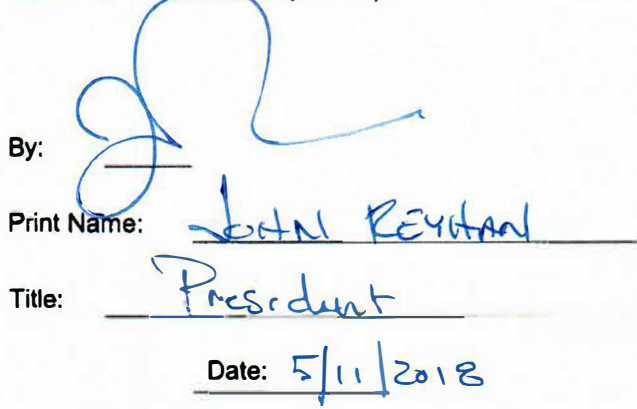 By:
Print Name: JOHN REYHAN
Title: President
Date: 5/11/2018